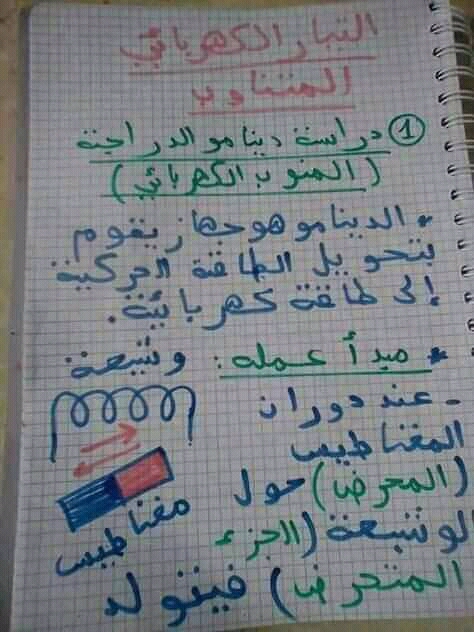 التيار الكهربائي
المتناوب
① دراسة دينامو الدراجة
(المنوب الكهربائي)
* الدينامو هو جهاز يقوم
بتحويل الطاقة الحركية
إلى طاقة كهربائية.
* مبدأ عمله: وشيعة
- عند دوران
المغناطيس
(المحرض) حول
لوشيعة (الجزء
المتحرض) فيتولد
مغناطيس